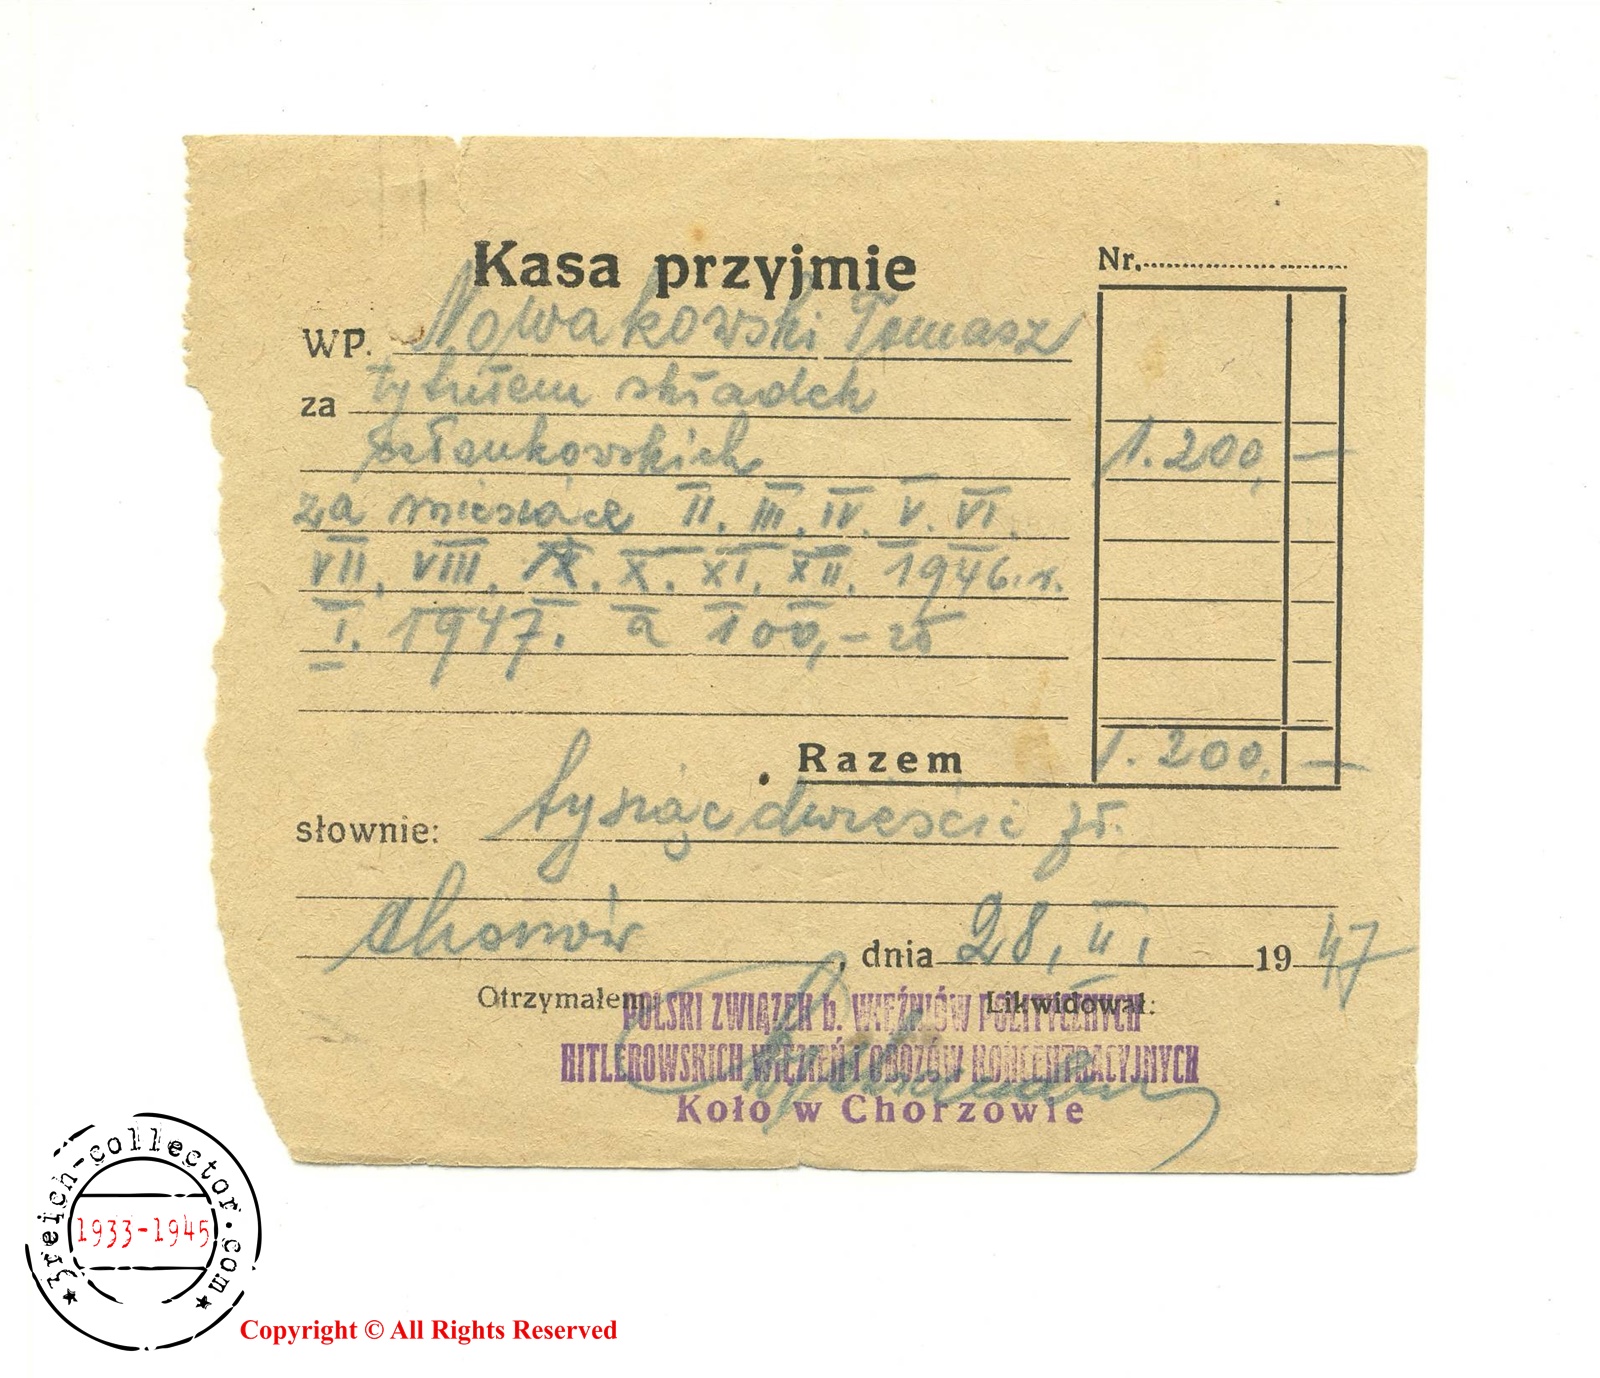 Kasa przyjmie
Nr.
WP. Nowakowski Tomasz
za tytułem składek
członkowskich 1.200,—
za miesiące II. III. IV. V. VI.
VII. VIII. IX. X. XI. XII. 1946.r.
I. 1947. a 100,- zł
Razem 1.200,—
słownie: tysiąc dwieście zł.
Chorzów, dnia 28. II. 1947
Otrzymałem: Likwidował:
POLSKI ZWIĄZEK b. WIĘŹNIÓW POLITYCZNYCH
HITLEROWSKICH WIĘZIEŃ I OBOZÓW KONCENTRACYJNYCH
Koło w Chorzowie
3reich-collector.com
1933-1945
Copyright © All Rights Reserved